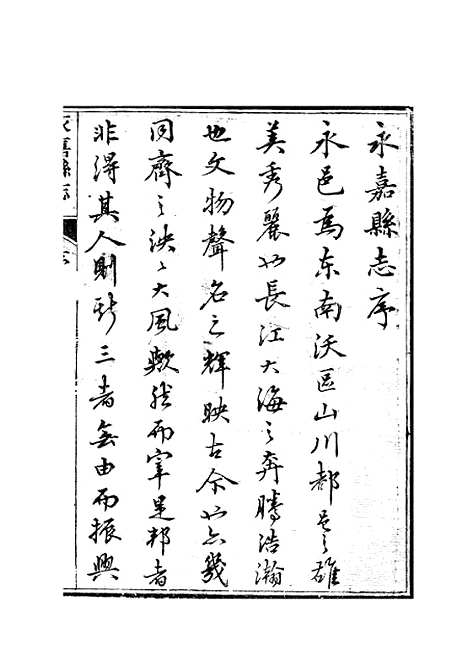 永嘉縣志序
永邑爲东南沃區山川都邑之雄
美秀麗如長江大海之奔騰浩瀚
也文物聲名之輝映古今如亦幾
同齊之泱泱大風歟然而宰是邦者
非得其人則斯三者無由而振興
永嘉縣志